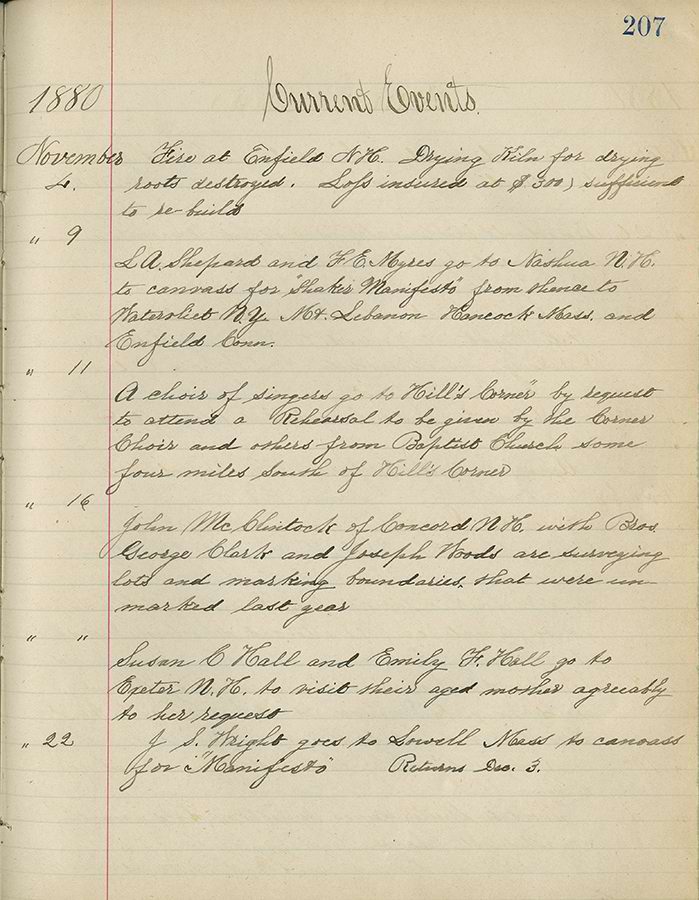 207
1880 Current Events.
November Fire at Enfield N.H. Drying Kiln for drying
4. roots destroyed. Loss insured at $300) sufficient
to re-build
" 9
L A. Shepard and F. E. Myres go to Nashua N.H.
to canvass for "Shaker Manifesto" from thence to
Watervliet N.Y. Mt. Lebanon Hancock Mass. and
Enfield Conn.
" 11
A choir of singers go to Hill's Corner" by request
to attend a Rehearsal to be given by the Corner
Choir and others from Baptist Church some
four miles South of Hill's Corner
" 16
John Mc Clintock of Concord N.H. with Bros.
George Clark and Joseph Woods are surveying
lots and marking boundaries, that were un-
marked last year
" "
Susan C Hall and Emily F. Hall go to
Exeter N.H. to visit their aged mother agreeably
to her request
" 22 J S. Wright goes to Lowell Mass to canvass
for "Manifesto" Returns Dec. 3.